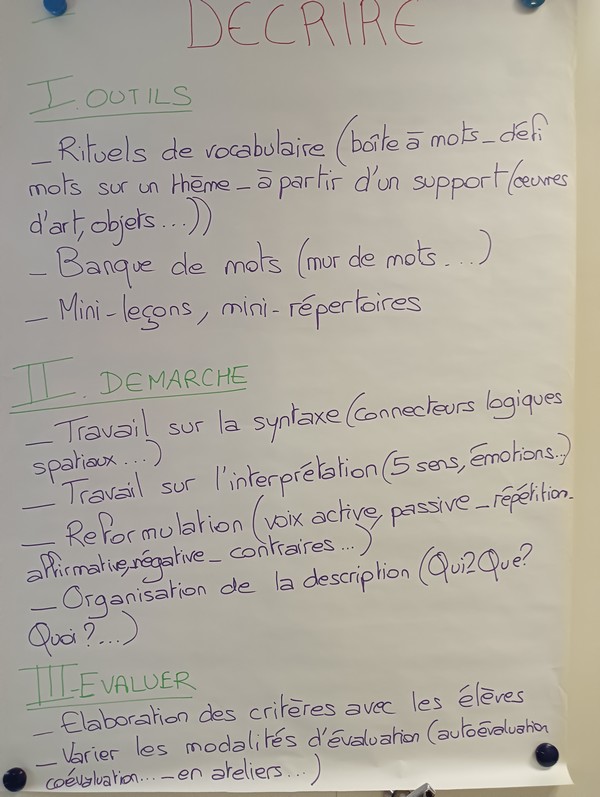 DECRIRE
I. OUTILS
_ Rituels de vocabulaire (boîte à mots_défi
mots sur un thème_à partir d'un support (œuvres
d'art, objets...))
_ Banque de mots (mur de mots...)
_ Mini-leçons, mini-répertoires
II. DEMARCHE
_ Travail sur la syntaxe (connecteurs logiques
spatiaux...)
_ Travail sur l'interprétation (5 sens, émotions..)
_ Reformulation (voix active, passive_répétition_
affirmative, négative_contraires...)
_ Organisation de la description (Qui? Que?
Quoi?...)
III-EVALUER
_ Elaboration des critères avec les élèves
_ Varier les modalités d'évaluation (autoévaluation
coévaluation...-en ateliers...)